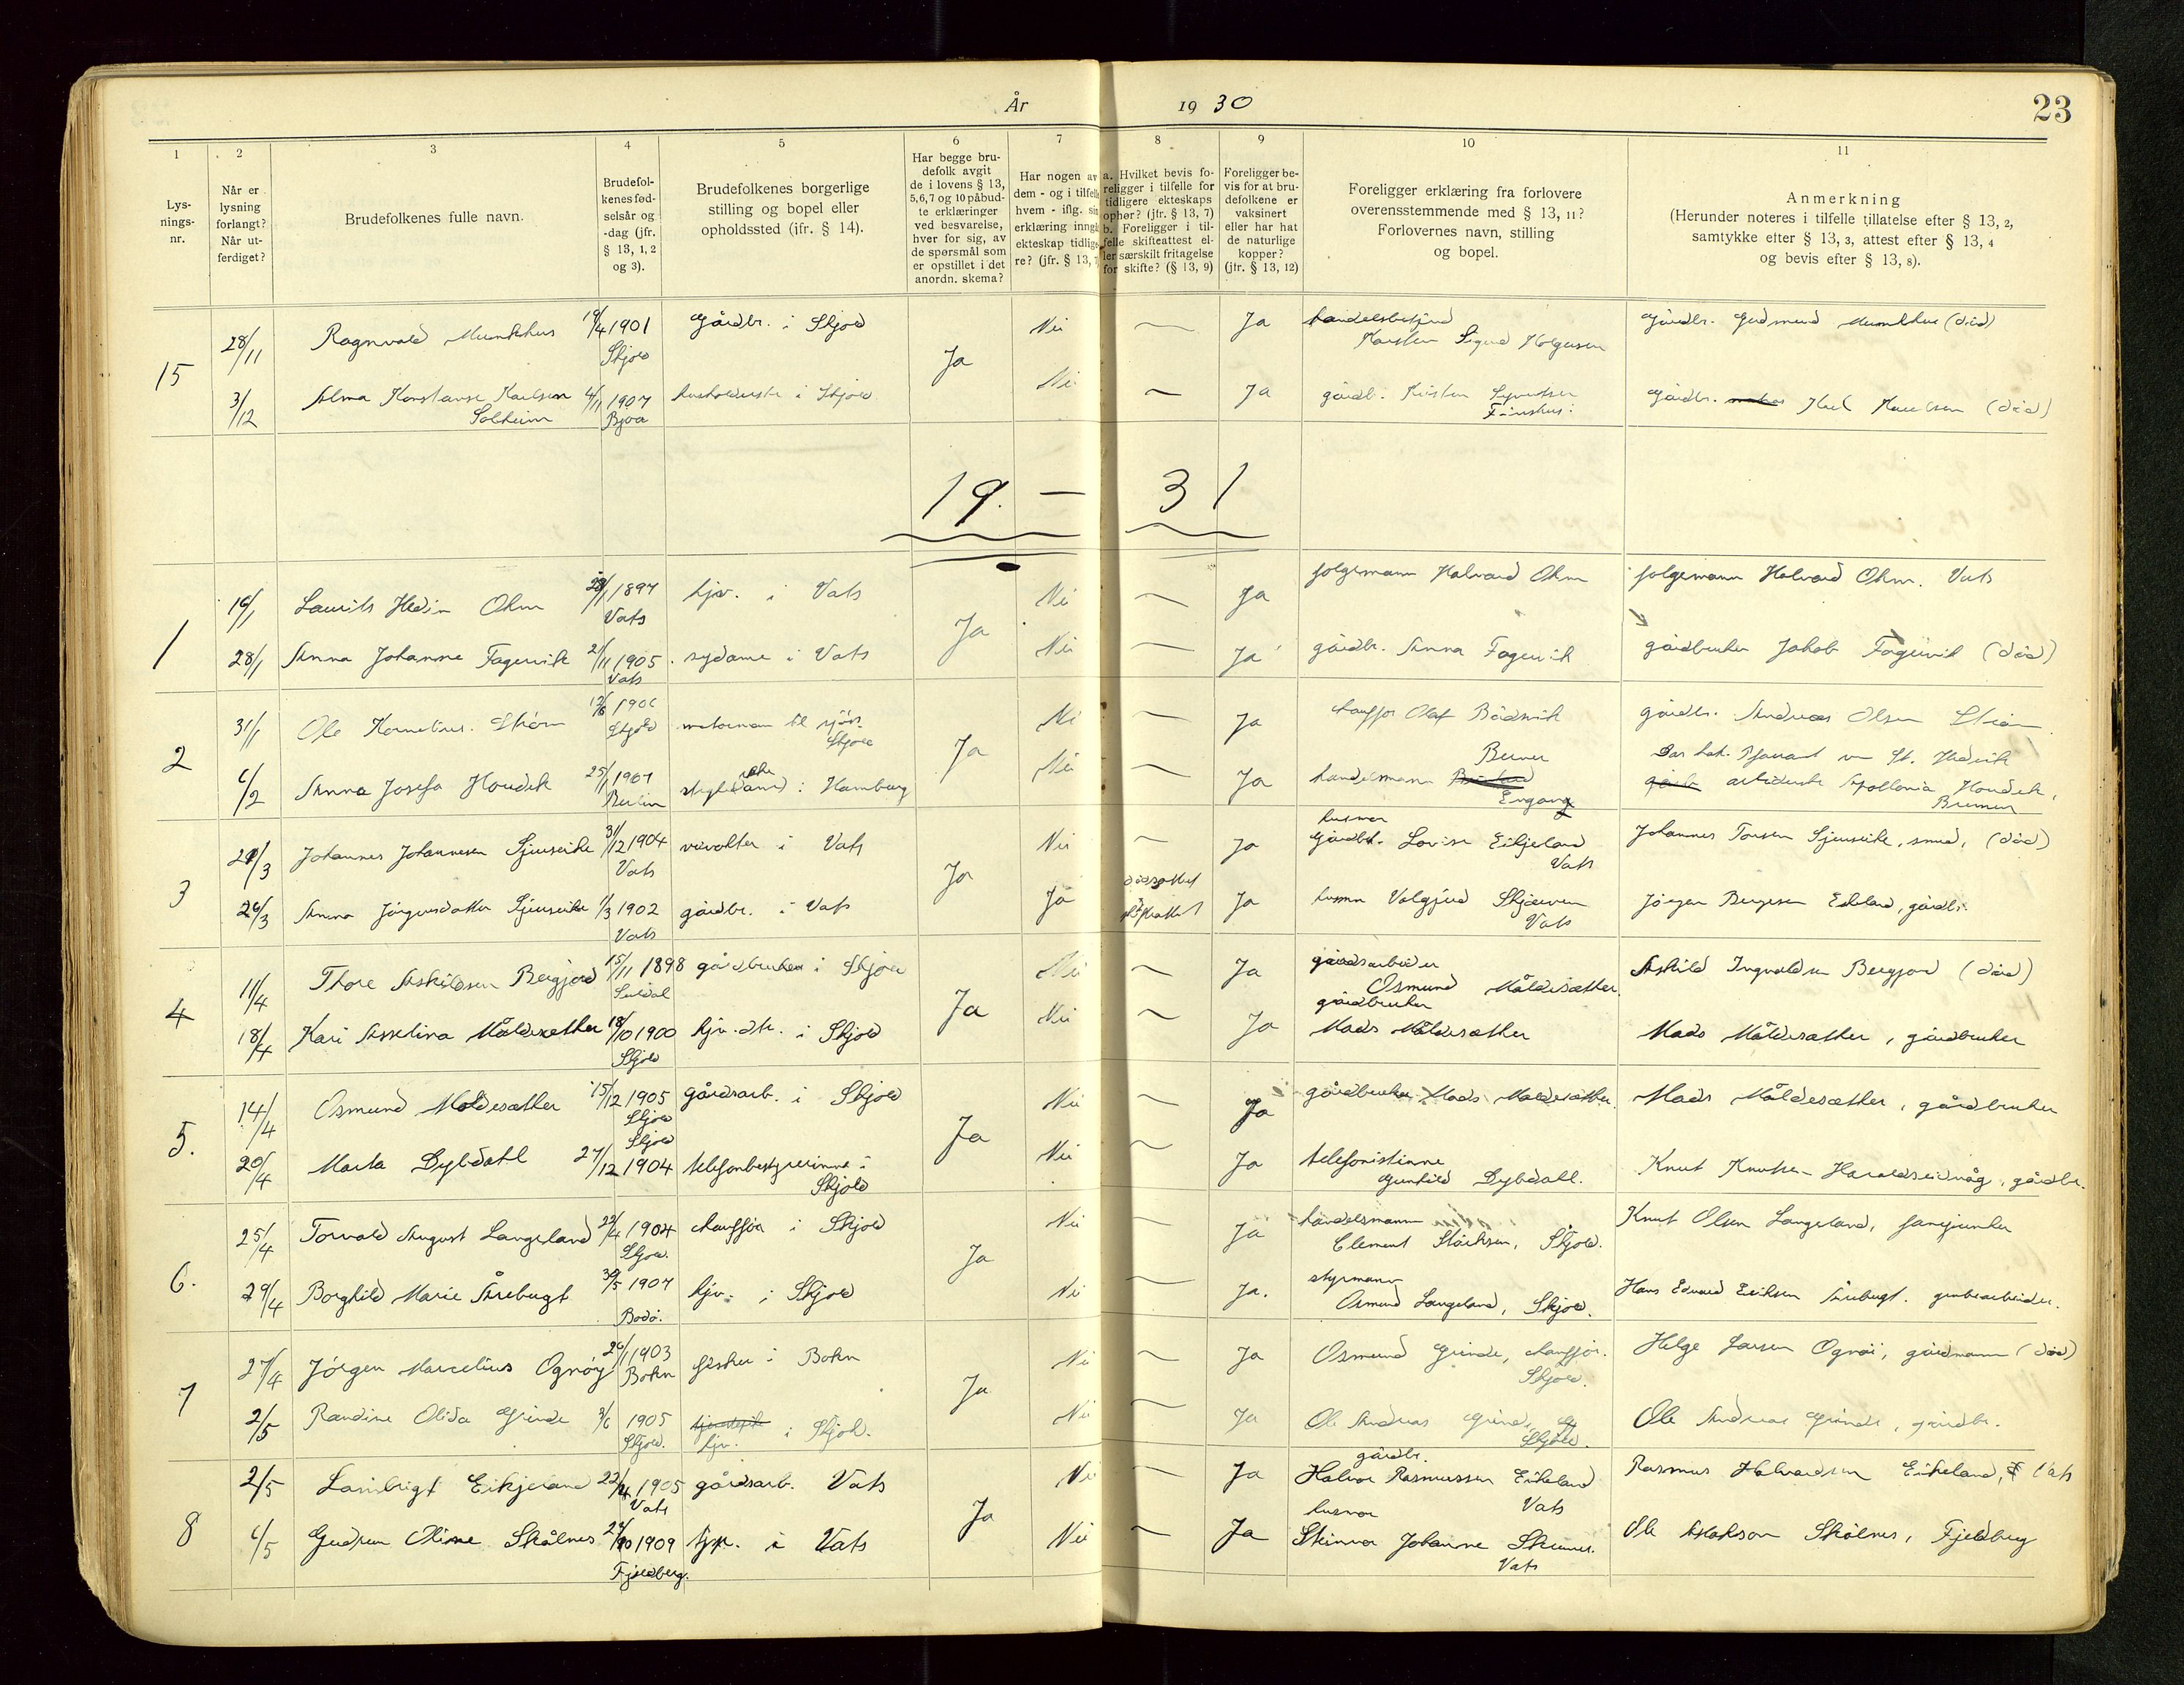 År 19 30
23
1 2 3 4 5 6 7 8 9 10 11
Lys-
nings-
nr.
Når er
lysning
forlangt?
Når ut-
ferdiget?
Brudefolkenes fulle navn.
Brudefol-
kenes fød-
selsår og
-dag (jfr.
§ 13, 1, 2
og 3).
Brudefolkenes borgerlige
stilling og bopel eller
opholdssted (ifr. § 14).
Har begge bru-
defolk avgit
de i lovens § 13,
5, 6, 7 og 10 påbud-
te erklæringer
ved besvarelse,
hver for sig, av
de spørsmål som
er opstillet i det
anordn. skema?
Har nogen av
dem - og i tilfelle
hvem - iflg. sin
erklæring inngå
ekteskap tidlige
re? (jfr. § 13, 7
a. Hvilket bevis fo-
religger i tilfelle for
tidligere ekteskaps
ophør? (jfr. § 13, 7)
b. Foreligger i til-
felle skifteattest el-
ler særskilt fritagelse
for skifte? (§ 13, 9)
Foreligger be-
vis for at bru-
defolkene er
vaksinert
eller har hat
de naturlige
kopper?
(jfr. § 13, 12)
Foreligger erklæring fra forlovere
overensstemmende med § 13, 11?
Forlovernes navn, stilling
og bopel.
Anmerkning
(Herunder noteres i tilfelle tillatelse efter § 13, 2,
samtykke efter § 13, 3, attest efter § 13, 4
og bevis efter § 13, 8).
15 28/11 Ragnvald Munkhus 19/4 1901 Skjold gårdbr. i Skjold Ja Nei — Ja Karsten Sigurd Holgersen gårdbr. Gudmund Munkhus (död)
3/12 Alma Konstanse Karlsen Solheim 4/11 1907 Bjoa husholderske i Skjold Nei — Ja gårdb. gårdbr. Karl (död)
19. — 31
1 16/1 Laurits Hedin Ohm 1897 Vats hjv. i Vats Ja Nei — Ja folgemann Halvard Ohm folgemann Halvard Ohm. Vats
28/1 Anna Johanne Fagervik 2/11 1905 Vats sydame i Vats Nei — Ja gårdbr. Anna Fagervik gårdbruker Jakob Fagervik (död)
2 31/1 Ole Kornelius Ström Skjold Skjold Ja Nei — Ja chauffør Olaf gårdbr. Andreas Olsen Ström
6/2 Anna Josefa Houdek 25/1 1907 Berlin i Hamburg Nei — Ja handelsmann Berner Engang arbeiderske Apollonia Houdek, Bremen
3 Johannes Johannesen Sjurseike 31/12 1904 Vats i Vats Ja Nei — Ja husmor Lovise Eikjeland Vats Johannes Torsen Sjurseike, smed, (död)
26/3 Anna Jörgensdatter Sjurseike 1/3 1902 Vats gårdbr. i Vats Ja dödsattest Ja husmor Valgjerd Vats Jörgen Bergesen Eikeland, gårdbr.
4 11/4 Thore Askildsen Bergjord 15/11 1898 Suldal gårdbruker i Skjold Ja Nei — Ja gårdsarbeider Osmund Måldesæther Askild Ingvaldsen Bergjord (död)
18/4 Kari Asselina Måldesæther 18/10 1900 Skjold hjv. dtr. i Skjold Nei — Ja gårdbruker Mads Måldesæther Mads Måldesæther, gårdbruker
5. 14/4 Osmund Moldesæther 15/12 1905 Skjold gårdsarb. i Skjold Ja Nei — Ja gårdbruker Mads Moldesæther Mads Måldesæther, gårdbruker
20/4 Marta Dybdahl Skjold 27/12 1904 telefonbestyrerinne i Skjold Nei — Ja telefonistinne Gunhild Dybdahl. Knut Knutsen Haraldseidvåg, gårdbr.
6. 25/4 Torvald August Langeland 22/4 1904 Skjold. chauffør i Skjold Ja Nei — Ja handelsmann Clement Skjold. Knut Olsen Langeland,
29/4 Borghild Marie Årebugt 30/5 1907 Bodö. hjv. i Skjold Nei — Ja. styrmann Osmund Langeland, Skjold. Hans Edvard Eriksen Årebugt. grubearbeider.
7 27/4 Jörgen Marcelius Ognöy 1903 Bokn fisker i Bokn Ja Nei — Ja Osmund Grinde, chauffør. Skjold. Helge Larsen Ognöi, gårdmann (död)
2/5 Randine Olida Grinde 3/6 1905 Skjold. hjv. i Skjold. Nei — Ja Ole Andreas Grinde, Skjold. Ole Andreas Grinde, gårdbr.
8 2/5 Lambrigt Eikjeland 22/4 1905 Vats gårdsarb. Vats Ja Nei — Ja gårdbr. Halvor Rasmussen Eikeland Vats Rasmus Halvardsen Eikeland, Vats
6/5 Gudrun Oline Skålnes 1909 Fjeldberg. hjv. i Vats Nei — Ja husmor Steinvor Johanne Vats Ole Skålnes, Fjeldberg